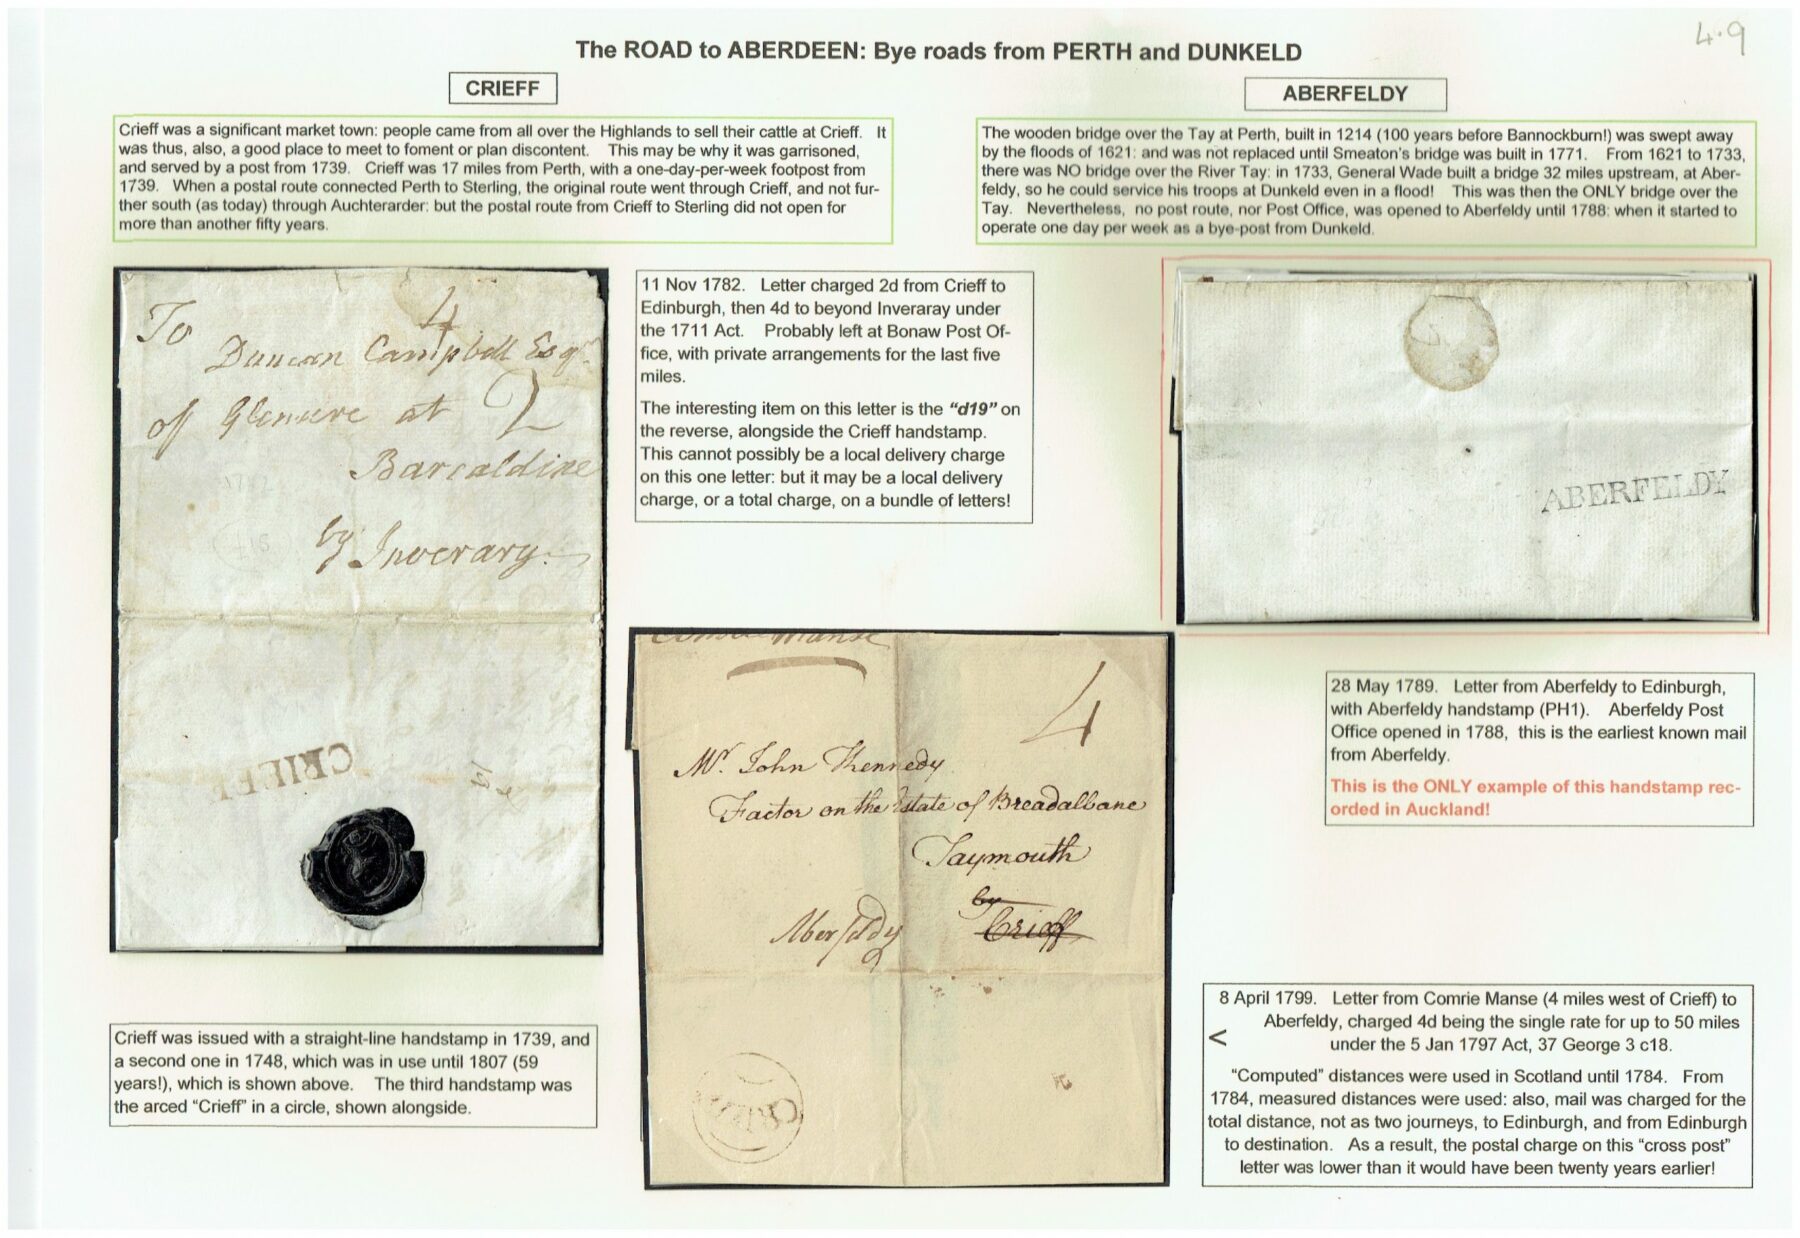 4.9
The ROAD to ABERDEEN: Bye roads from PERTH and DUNKELD
CRIEFF
Crieff was a significant market town: people came from all over the Highlands to sell their cattle at Crieff. It
was thus, also, a good place to meet to foment or plan discontent. This may be why it was garrisoned,
and served by a post from 1739. Crieff was 17 miles from Perth, with a one-day-per-week footpost from
1739. When a postal route connected Perth to Sterling, the original route went through Crieff, and not fur-
ther south (as today) through Auchterarder: but the postal route from Crieff to Sterling did not open for
more than another fifty years.
ABERFELDY
The wooden bridge over the Tay at Perth, built in 1214 (100 years before Bannockburn!) was swept away
by the floods of 1621: and was not replaced until Smeaton's bridge was built in 1771. From 1621 to 1733,
there was NO bridge over the River Tay: in 1733, General Wade built a bridge 32 miles upstream, at Aber-
feldy, so he could service his troops at Dunkeld even in a flood! This was then the ONLY bridge over the
Tay. Nevertheless, no post route, nor Post Office, was opened to Aberfeldy until 1788: when it started to
operate one day per week as a bye-post from Dunkeld.
To
4
Duncan Campbell Esqr
of Glenure at 2
Barcaldine
by Inverary
CRIEFF
11 Nov 1782. Letter charged 2d from Crieff to
Edinburgh, then 4d to beyond Inveraray under
the 1711 Act. Probably left at Bonaw Post Of-
fice, with private arrangements for the last five
miles.
The interesting item on this letter is the "d19" on
the reverse, alongside the Crieff handstamp.
This cannot possibly be a local delivery charge
on this one letter: but it may be a local delivery
charge, or a total charge, on a bundle of letters!
ABERFELDY
28 May 1789. Letter from Aberfeldy to Edinburgh,
with Aberfeldy handstamp (PH1). Aberfeldy Post
Office opened in 1788, this is the earliest known mail
from Aberfeldy.
This is the ONLY example of this handstamp rec-
orded in Auckland!
Comrie Manse
4
Mr. John Kennedy
Factor on the Estate of Breadalbane
Taymouth
by
Crieff
Aberfeldy
CRIEFF
Crieff was issued with a straight-line handstamp in 1739, and
a second one in 1748, which was in use until 1807 (59
years!), which is shown above. The third handstamp was
the arced "Crieff" in a circle, shown alongside.
8 April 1799. Letter from Comrie Manse (4 miles west of Crieff) to
< Aberfeldy, charged 4d being the single rate for up to 50 miles
under the 5 Jan 1797 Act, 37 George 3 c18.
"Computed" distances were used in Scotland until 1784. From
1784, measured distances were used: also, mail was charged for the
total distance, not as two journeys, to Edinburgh, and from Edinburgh
to destination. As a result, the postal charge on this "cross post"
letter was lower than it would have been twenty years earlier!